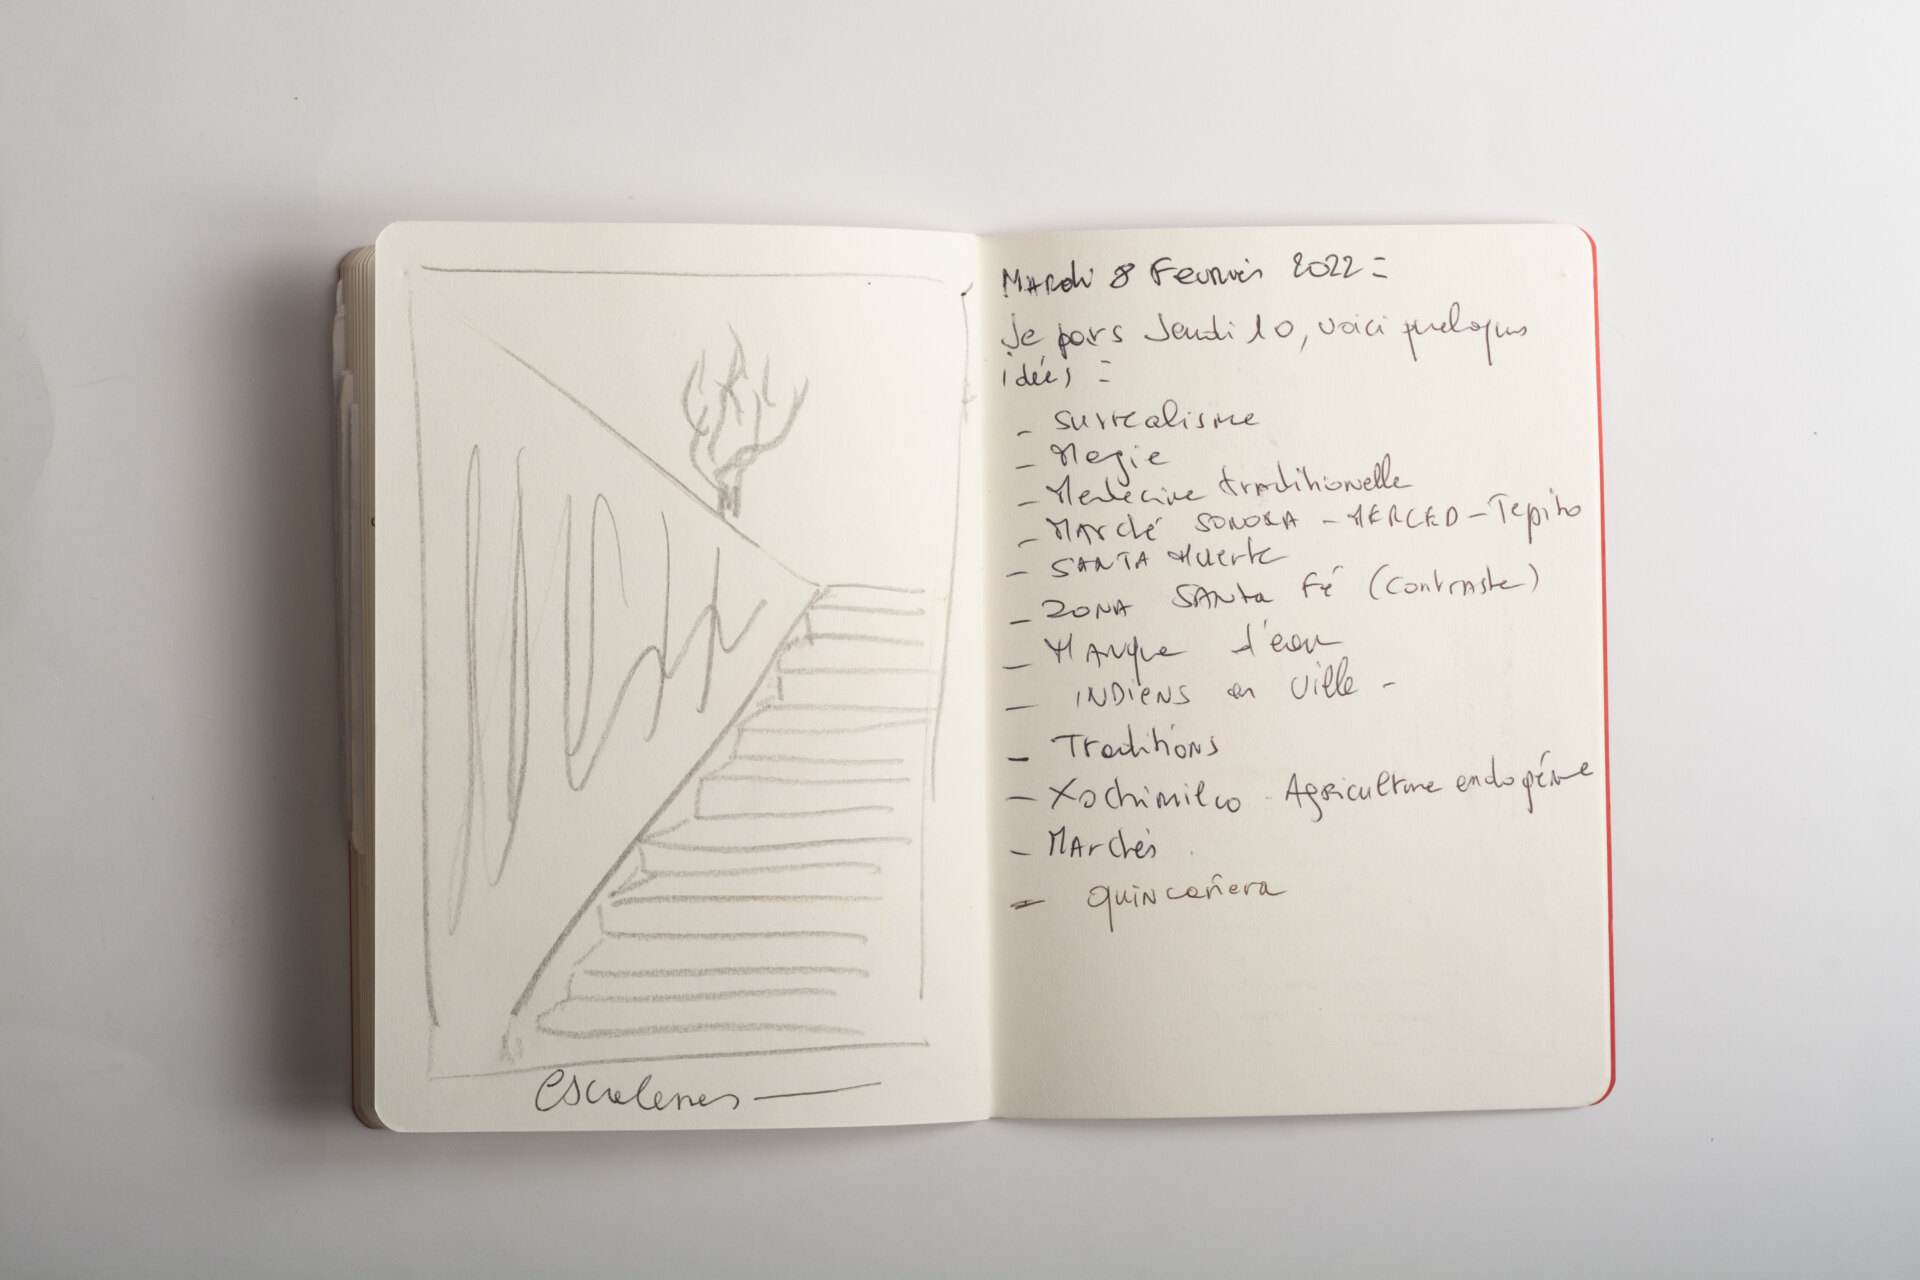 escaleras
Mardi 8 Fevrier 2022 :
Je pars Jeudi 10, voici quelques
idées :
- surrealisme
- Magie
- Medecine traditionelle
- Marché SONORA - MERCED - Tepito
- SANTA Muerte
- ZONA SANTA Fé (contraste)
- Manque d'eau
- INDIENS en ville -
- Traditions
- Xochimilco - Agriculture endogène
- Marchés
- quinceñera